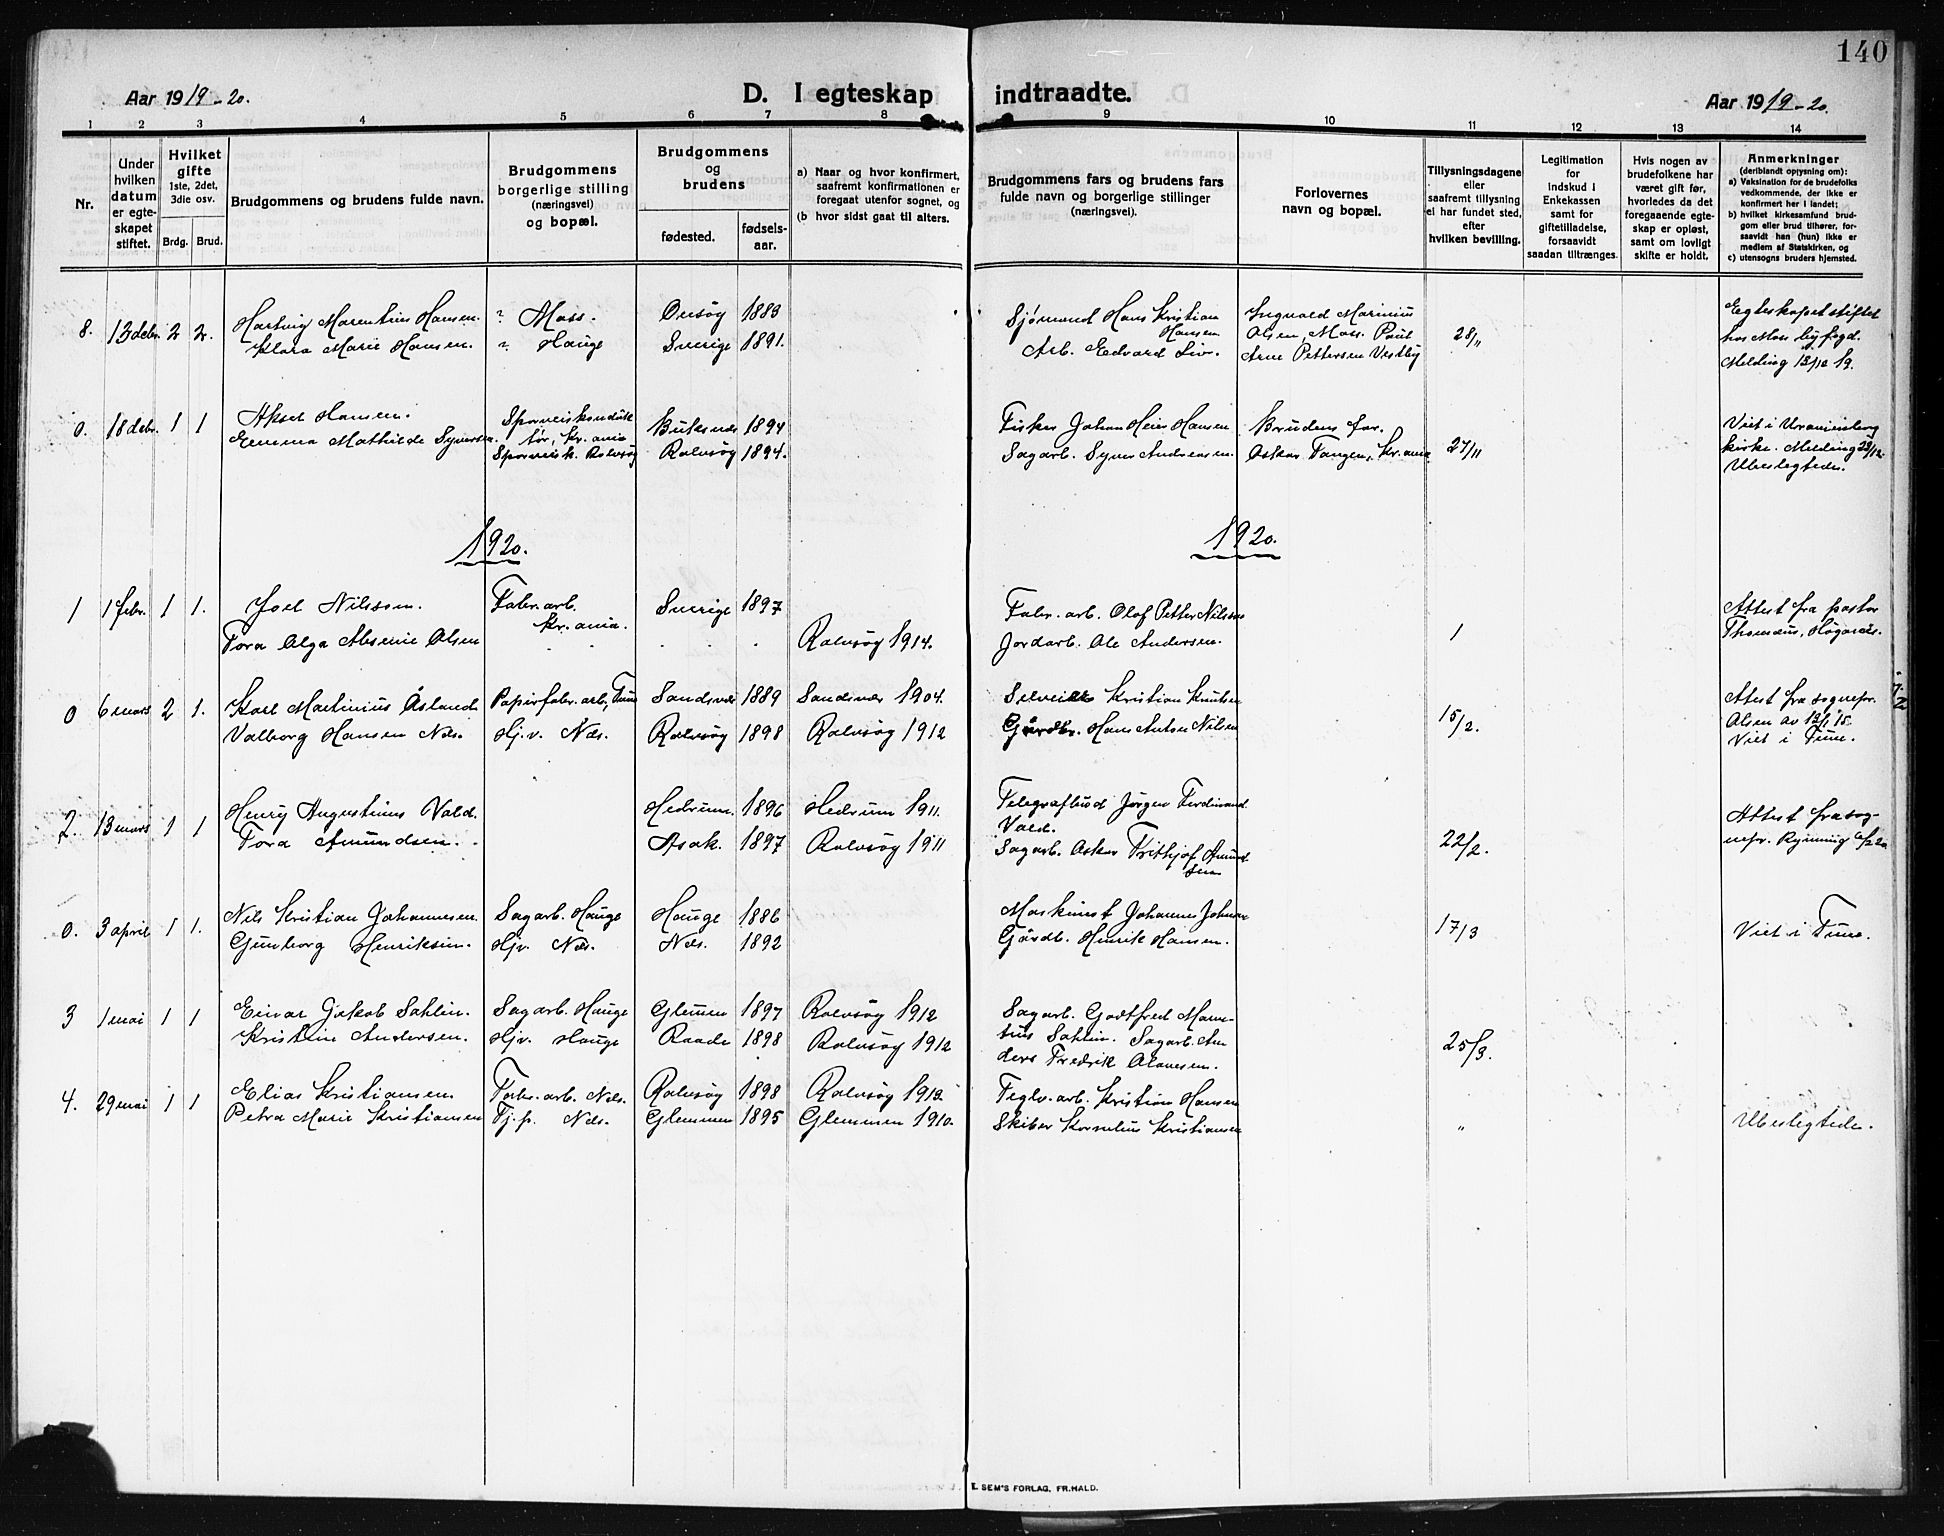 140
Aar 1919-20.
D. I egteskap indtraadte.
Aar 1919-20.
1 2 3 4 5 6 7 8 9 10 11 12 13 14
Nr.
Under hvilken datum er egteskapet stiftet.
Hvilket gifte 1ste, 2det, 3die osv.
Brdg. Brud.
Brudgommens og brudens fulde navn.
Brudgommens borgerlige stilling (næringsvei) og bopæl.
Brudgommens og brudens
fødested.
fødselsaar.
a) Naar og hvor konfirmert, saafremt konfirmationen er foregaat utenfor sognet, og
(b hvor sidst gaat til alters.
Brudgommens fars og brudens fars fulde navn og borgerlige stillinger (næringsvei).
Forlovernes navn og bopæl.
Tillysningsdagene eller saafremt tillysning ei har fundet sted, efter hvilken bevilling.
Legitimation for indskud i Enkekassen samt for giftetilladelse, forsaavidt saadan tiltrænges.
Hvis nogen av brudefolkene har været gift før, hvorledes da det foregaaende egteskap er opløst, samt om lovligt skifte er holdt.
Anmerkninger
(deriblandt oplysning om):
a) Vaksination for de brudefolks vedkommende, der ikke er konfirmert her i landet;
b) hvilket kirkesamfund brudgom eller brud tilhører, forsaavidt han (hun) ikke er medlem af Statskirken, og
c) utensogns bruders hjemsted.
8. 13 debr. 2 2. Hartvig Marentius Hansen. " Moss. Onsöy 1883 Sjømand Hans Kristian Hansen Ingvald Marinius 28/11 Egteskapet stiftet
Klara Marie Hansen. " Hauge Sverige 1891. Arb. Edvard Liv. Olsen, Moss. Paul hos Moss byfogd.
Arne Pettersen Vestby Melding 13/12 19.
0. 18 debr. 1 1 Aksel Hansen. Sporveiskonduk Buksnæs 1894 Fisker Johan Hansen Brudens far. 27/11 Viet i Uranienborg
Emma Mathilde Syversen. tør, Kr.ania Rolvsöy 1894. Sagarb. Syver Andersen. Oskar Tangen, Kr.ania kirke. Melding 29/12
Sporveisk. Rolvsöy Ubeslegtede.
1920. 1920.
1 1 febr. 1 1. Joel Nilssen. Fabr.arb. Kr.ania. Sverige 1897 Fabr.arb. Olof Petter Nilssen 1 Attest fra pastor
Tora Olga Absenie Olsen Rolvsöy 1914. Jordarb. Ole Andersen.
0 6 mars 2 1. Karl Martinius Åsland Papirfabr.arb, Tune Sandsvær 1889 Sandsvær 1904. Kristian Knutsen 15/2. Attest fra sognepr.
Valborg Hansen Næs. Hj.v. Næs. Rolvsöy 1898 Rolvsöy 1912 Gårdbr. Hans Anton Nilsen Olsen av 13/1 15.
Viet i Tune.
2. 13 mars 1 1 Henry Augustinus Vald. Hedrum. 1896 Hedrum 1911. Telegrafbud Jörgen Ferdinand Vald. 22/2. Attest fra sog-
Tora Amundsen. Asak. 1897 Rolvsöy 1911 Sagarb. Oskar Frithjof Amundsen nepr. Rynning
0. 3 april 1 1. Nils Kristian Johannesen. Sagarb. Hauge Hauge 1886 Maskinist Johannes 17/3 Viet i Tune.
Gunborg Henriksen. Hjv. Næs. Næs. 1892 Gårdb. Henrik Hansen.
3 1 mai 1 1 Einar Jakob Sahlin. Sagarb. Hauge Glemmen 1897 Rolvsöy 1912 Sagarb. Godtfred 25/3.
Kristine Andersen. Hjv. Hauge Raade 1898 Rolvsöy 1912 tius Sahlin. Sagarb. An
ders Fredrik
4. 29 mai 1 1 Elias Kristiansen. Fabr.arb. Næs. Rolvsöy 1898 Rolvsöy 1913. Teglv.arb. Kristian Hansen " Ubeslegtede.
Petra Marie Kristiansen Tj.p. Næs. Glemmen 1895 Glemmen 1910. Skiber Kornelius Kristiansen
E. SEM'S FORLAG, FR.HALD.